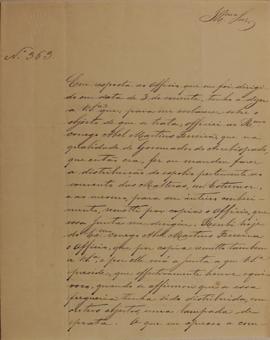 Illmo Snr
N. 363.
Em resposta ao Officio que me foi dirigi
do em data de 3 do corrente, tenho a dizer
a VSa que, para me esclarecer sobre o
objecto de que se trata, officiei ao Revmo
conego Abel Martins Ferreira, que na
qualidade de Governador do Arcebispado
que então era, fez ou mandou fazer
a distribuição da capella pertencente ao
convento das
e ao mesmo, para seu inteiro conheci
mento, remetto por copia o Officio, que
essa Junta me dirigiu. Recebi hoje
do Exmo conego Abel Martins Ferreira
o Officio, que por copia remetto tambem
a VSa, e por elle verá a Junta a que VSa
preside, que effectivamente houve equi
voco, quando se affirmou que a essa
freguezia tenha sido distribuida, com
outros objectos, uma lampada de
prata. O que me apresso a com